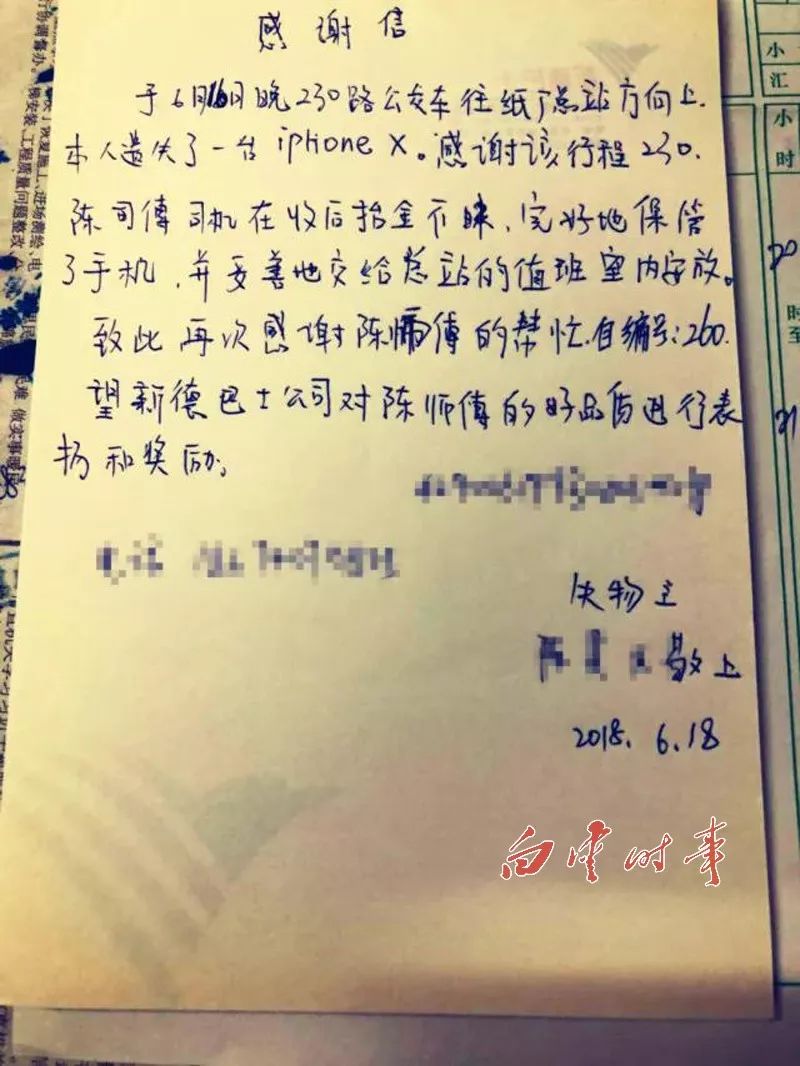 感谢信
于6月16日晚230路公交车往纸厂总站方向上.
本人遗失了一台iphone X。感谢该行程230.
陈司傅司机在收后拾金不昧、完好地保管
了手机,并妥善地交给总站的值班室内安放。
致此再次感谢陈师傅的帮忙.自编号:260.
望新德巴士公司对陈师傅的好品质进行表
扬和奖励;
失物主
敬上
2018. 6.18
白云时事
小
汇
小
时
时
至
20
21